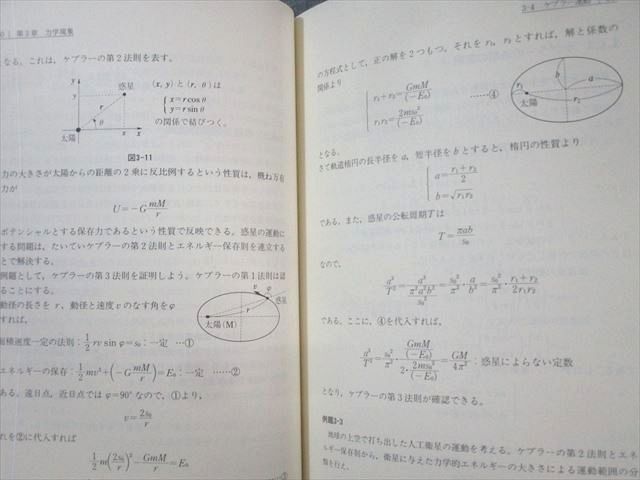 第3章 力学風景
なる。これは、ケプラーの第2法則を表す。
y
y
惑星
r
θ
太陽
x
x
(x, y) と (r, θ) は
{ x=r cos θ
y=r sin θ
の関係で結びつく。
図3-11
力の大きさが太陽からの距離の2乗に反比例するという性質は、概ね万有
力が
U=−G mM/r
ポテンシャルとする保存力であるという性質で反映できる。惑星の運動に
する問題は、たいていケプラーの第2法則とエネルギー保存則を連立する
とで解決する。
例題として、ケプラーの第3法則を証明しよう。ケプラーの第1法則は認
ることにする。
動径の長さを r、動径と速度 v のなす角を φ
すれば、
v
φ
惑星
r
太陽 (M)
面積速度一定の法則：1/2 rv sin φ=s₀：一定 …①
エネルギーの保存：1/2 mv²+(−G mM/r)=E₀：一定 ……②
ある。遠日点、近日点では φ=90° なので、①より、
v=2s₀/r
れを②に代入すれば
1/2 m(2s₀/r)²−GmM/r=E₀
3-4 ケプラー運動
の方程式として、正の解を2つもつ。それを r₁, r₂ とすれば、解と係数の
関係より
{ r₁+r₂=GmM/(−E₀)
r₁r₂=2ms₀²/(−E₀)
……④
b
a
r₁
太陽
r₂
となる。
さて軌道楕円の長半径を a、短半径を b とすると、楕円の性質より
{ a=(r₁+r₂)/2
b=√r₁r₂
である。また、惑星の公転周期 T は
T=πab/s₀
なので、
a³/T²=a³/(π²a²b²/s₀²)=s₀²/π²・a/b²=s₀²/π²・(r₁+r₂)/2r₁r₂
である。ここに、④を代入すれば、
a³/T²=s₀²/π²・(GmM/(−E₀))/(2・2ms₀²/(−E₀))=GM/4π²：惑星によらない定数
となり、ケプラーの第3法則が確認できる。
例題3-3
地球の上空で打ち出した人工衛星の運動を考える。ケプラーの第2法則とエネ
ルギー保存則から、衛星に与えた力学的エネルギーの大きさによる運動範囲の分
類を行え。